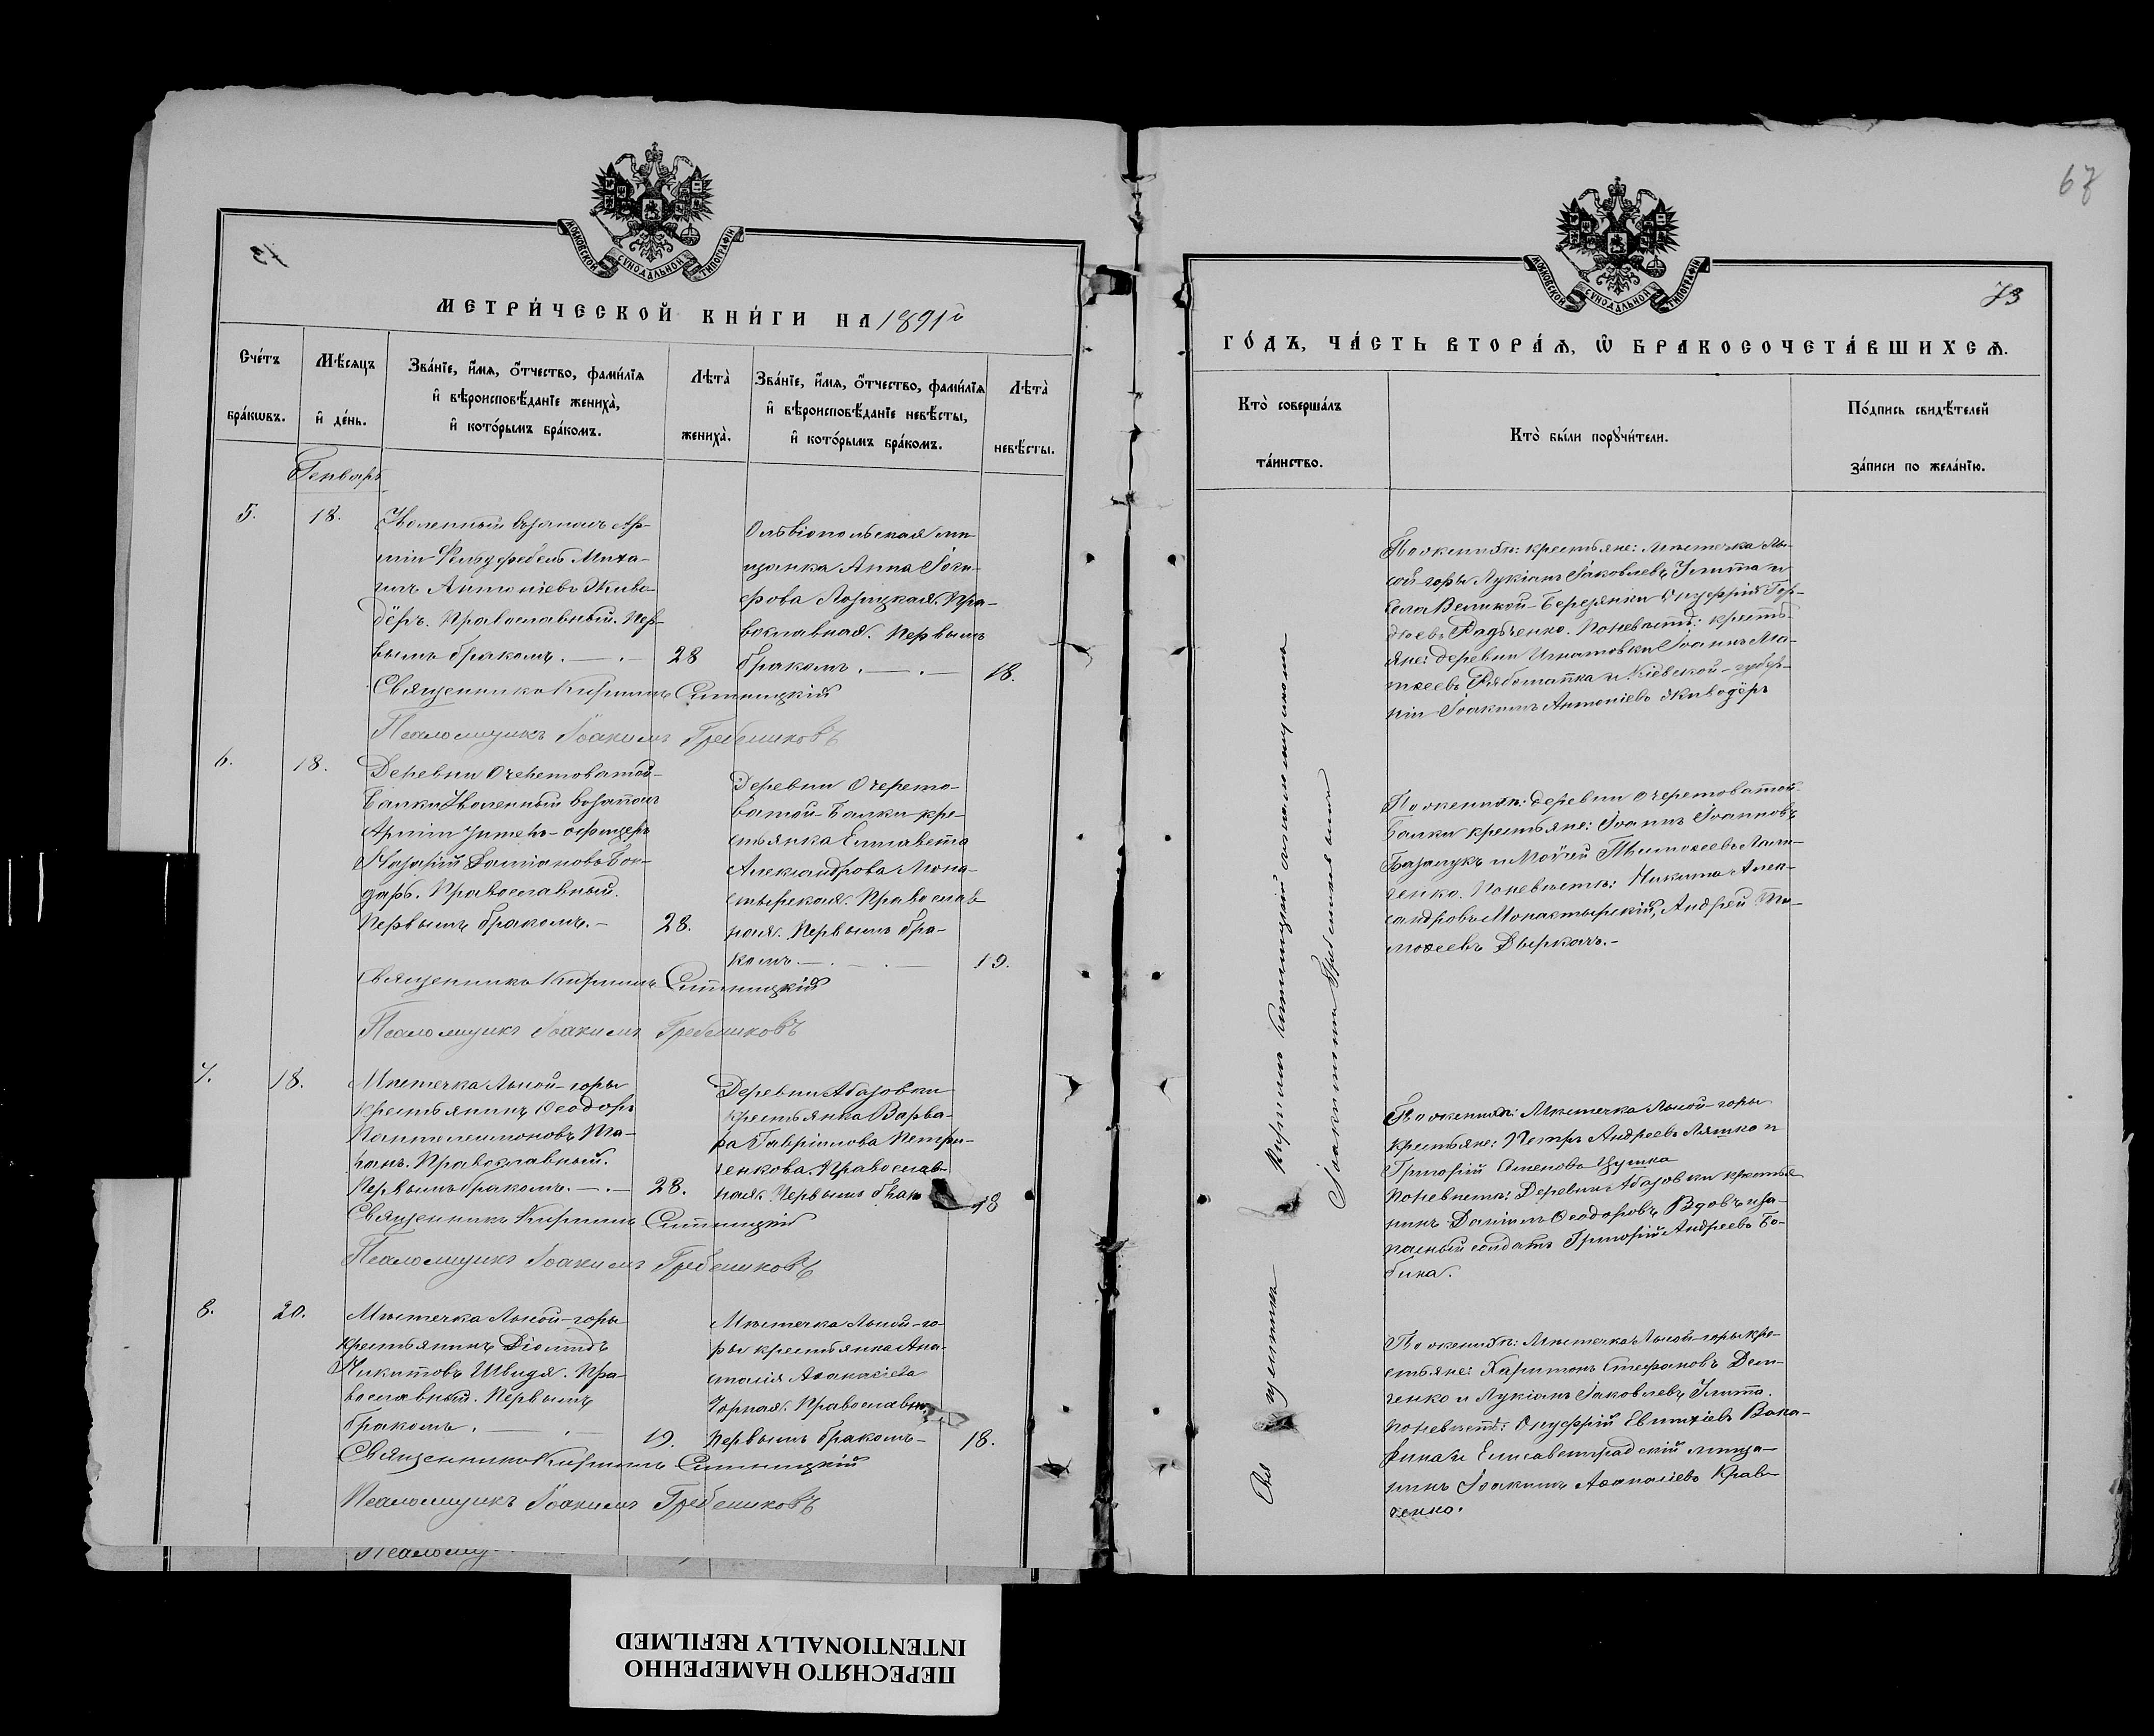 МОСКОВСКОЙ СѴНОДАЛЬНОЙ ТИПОГРАФІИ
МЕТРИ́ЧЕСКОЙ КНИ́ГИ НА 1891й
Сче́тъ бра́кѡвъ.
Мѣ́сяцъ и҆ де́нь.
Зва́нїе, и҆́мя, ѻ҆́тчество, фами́лїя
и҆ вѣроисповѣ́данїе жениха̀,
и҆ кото́рымъ бра́комъ.
Лѣта̀ жениха̀.
Зва́нїе, и҆́мя, ѻ҆́тчество, фами́лїя
и҆ вѣроисповѣ́данїе невѣ́сты,
и҆ кото́рымъ бра́комъ.
Лѣта̀ невѣ́сты.
Генварь
5.
18.
Уволенный въ запасъ Ар-
міи Фельдфебель Миха-
илъ Антоніевъ Живо-
дёръ. Православный. Пер-
вымъ бракомъ.
28
Ольвіопольская мѣ-
щанка Анна
Пра-
вославная. Первымъ
бракомъ.
18.
Священникъ Кириллъ Ситницкій
Псаломщикъ Іоакимъ Гребениковъ
6.
18.
Деревни Очеретоватой-
Балки Уволенный въ запасъ
Арміи Унтеръ-офицеръ
Назарій Даміановъ Бон-
дарь. Православный.
Первымъ бракомъ.
28.
Деревни Очерето-
ватой-Балки кре-
стьянка Елисавета
Александрова Мона-
стырская. Православ-
ная. Первымъ бра-
комъ.
19.
Священникъ Кириллъ Ситницкій
Псаломщикъ Іоакимъ Гребениковъ
7.
18.
Мѣстечка Лысой-горы
крестьянинъ Ѳеодоръ
Пантелеимоновъ
Православный.
Первымъ бракомъ.
28.
Деревни Абазовки
крестьянка Варва-
ра Гавріилова Петри-
ченкова. Православ-
ная. Первымъ брак
18
Священникъ Кириллъ Ситницкій
Псаломщикъ Іоакимъ Гребениковъ
8.
20.
Мѣстечка Лысой-горы
крестьянинъ Діомидъ
Никитовъ Швидя. Пра-
вославный. Первымъ
бракомъ.
19.
Мѣстечка Лысой-го-
ры крестьянка Ана-
стасія Аѳанасіева
Чорная. Православн.
Первымъ бракомъ
18.
Священникъ Кириллъ Ситницкій
Псаломщикъ Іоакимъ Гребениковъ
67
73
МОСКОВСКОЙ СѴНОДАЛЬНОЙ ТИПОГРАФІИ
ГО́ДЪ, ЧА́СТЬ ВТОРА́Я, Ѽ БРАКОСОЧЕТА́ВШИХСЯ.
Кто̀ соверша́лъ та́инство.
Кто̀ бы́ли порꙋчи́тели.
По́дпись свидѣ́телей за́писи по жела́нїю.
Священникъ Кириллъ Ситницкій съ псаломщикомъ
Іоакимомъ Гребениковымъ
По женихѣ: крестьяне: мѣстечка Лы-
сой-горы Лукіанъ Іаковлевъ и
села Великой-Березянки Онуфрій Гор-
діевъ Радченко. По невѣстѣ: кресть-
яне: деревни Игнатовки Іоаннъ Ма-
тѳеевъ и Кіевской-губер-
ніи Іоакимъ Антоніевъ Живодёръ
По женихѣ: деревни Очеретоватой-
Балки крестьяне: Іоаннъ Іоанновъ
Базалукъ и Моѵсей Тимоѳеевъ
По невѣстѣ: Никита Алек-
сандровъ Монастырскій, Андрей Ти-
моѳеевъ Дыркачъ.
По женихѣ: Мѣстечка Лысой-горы
крестьяне: Петръ Андреевъ Ляшко и
Григорій Семеновъ Цушка
По невѣстѣ: Деревни Абазовки крестья-
нинъ Даніилъ Ѳеодоровъ Вдовъ и за-
пасный солдатъ Григорій Андреевъ Бо-
бина.
По женихѣ: Мѣстечка Лысой-горы кре-
стьяне: Харитонъ Стефановъ Дем-
ченко и Лукіанъ Іаковлевъ
По невѣстѣ: Онуфрій Евтихіевъ
и Елисаветградскій мѣща-
нинъ Іоакимъ Аѳанасіевъ Крав-
ченко.
ПЕРЕСНЯТО НАМЕРЕННО
INTENTIONALLY REFILMED